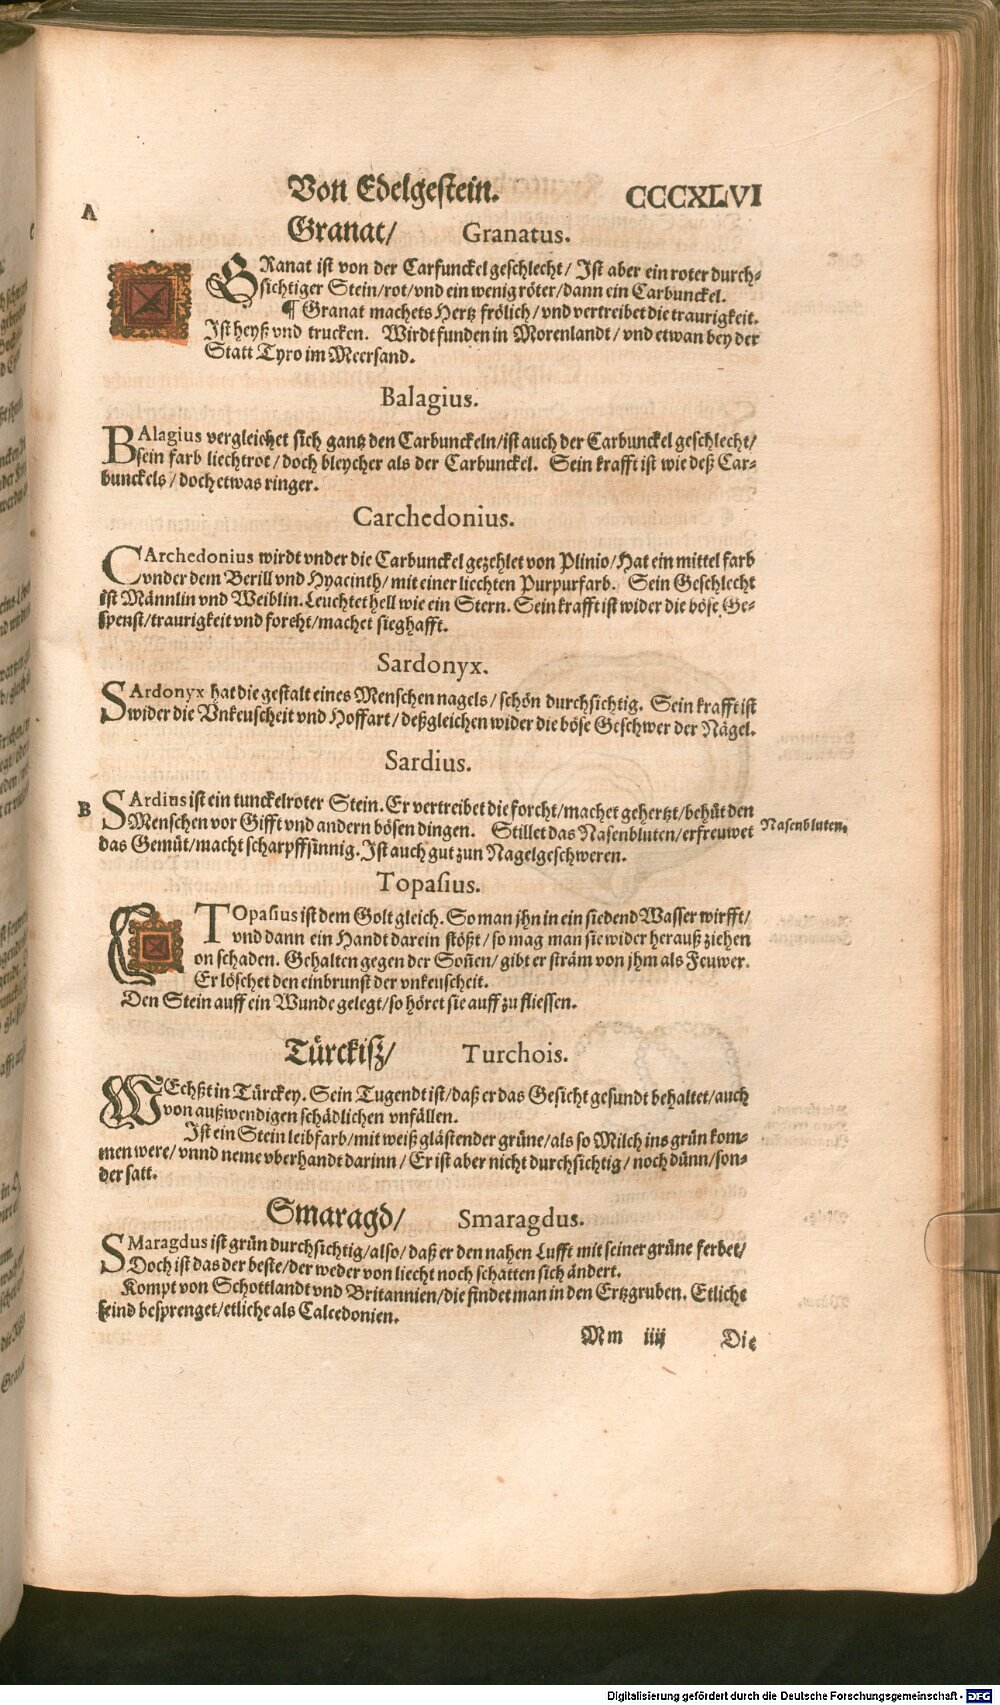 Von Edelgestein. CCCXLVI
A
Granat/ Granatus.
GRanat ist von der Carfunckel geschlecht/ Ist aber ein roter durch-
sichtiger Stein/rot/vnd ein wenig röter/dann ein Carbunckel.
¶ Granat machets Hertz frölich/vnd vertreibet die traurigkeit.
Ist heyß vnd trucken. Wirdt funden in Morenlandt/vnd etwan bey der
Statt Tyro im Meersand.
Balagius.
BAlagius vergleichet sich gantz den Carbunckeln/ist auch der Carbunckel geschlecht/
sein farb liechtrot/doch bleycher als der Carbunckel. Sein krafft ist wie deß Car-
bunckels/doch etwas ringer.
Carchedonius.
CArchedonius wirdt vnder die Carbunckel gezehlet von Plinio/Hat ein mittel farb
vnder dem Berill vnd Hyacinth/mit einer liechten Purpurfarb. Sein Geschlecht
ist Männlin vnd Weiblin. Leuchtet hell wie ein Stern. Sein krafft ist wider die böse Ge-
spenst/traurigkeit vnd forcht/machet sieghafft.
Sardonyx.
SArdonyx hat die gestalt eines Menschen nagels/schön durchsichtig. Sein krafft ist
wider die Vnkeuscheit vnd Hoffart/deßgleichen wider die böse Geschwer der Nägel.
Sardius.
B
SArdius ist ein tunckelroter Stein. Er vertreibet die forcht/machet gehertzt/behüt den
Menschen vor Gifft vnd andern bösen dingen. Stillet das Nasenbluten/erfreuwet
Nasenbluten.
das Gemüt/macht scharpffsinnig. Ist auch gut zun Nagelgeschweren.
Topasius.
TOpasius ist dem Golt gleich. So man jhn in ein siedend Wasser wirfft/
vnd dann ein Handt darein stößt/so mag man sie wider herauß ziehen
on schaden. Gehalten gegen der Soñen/gibt er sträm von jhm als Feuwer.
Er löschet den einbrunst der vnkeuscheit.
Den Stein auff ein Wunde gelegt/so höret sie auff zu fliessen.
Türckiß/ Turchois.
WEchßt in Türckey. Sein Tugendt ist/daß er das Gesicht gesundt behaltet/auch
von außwendigen schädlichen vnfällen.
Ist ein Stein leibfarb/mit weiß glästender grüne/als so Milch ins grün kom-
men were/vnnd neme vberhandt darinn/Er ist aber nicht durchsichtig/noch dünn/son-
der satt.
Smaragd/ Smaragdus.
SMaragdus ist grün durchsichtig/also/daß er den nahen Lufft mit seiner grüne ferbet/
Doch ist das der beste/der weder von liecht noch schatten sich ändert.
Kompt von Schottlandt vnd Britannien/die findet man in den Ertzgruben. Etliche
seind besprenget/etliche als Calcedonien.
Mm iiij Die
Digitalisierung gefördert durch die Deutsche Forschungsgemeinschaft - DFG